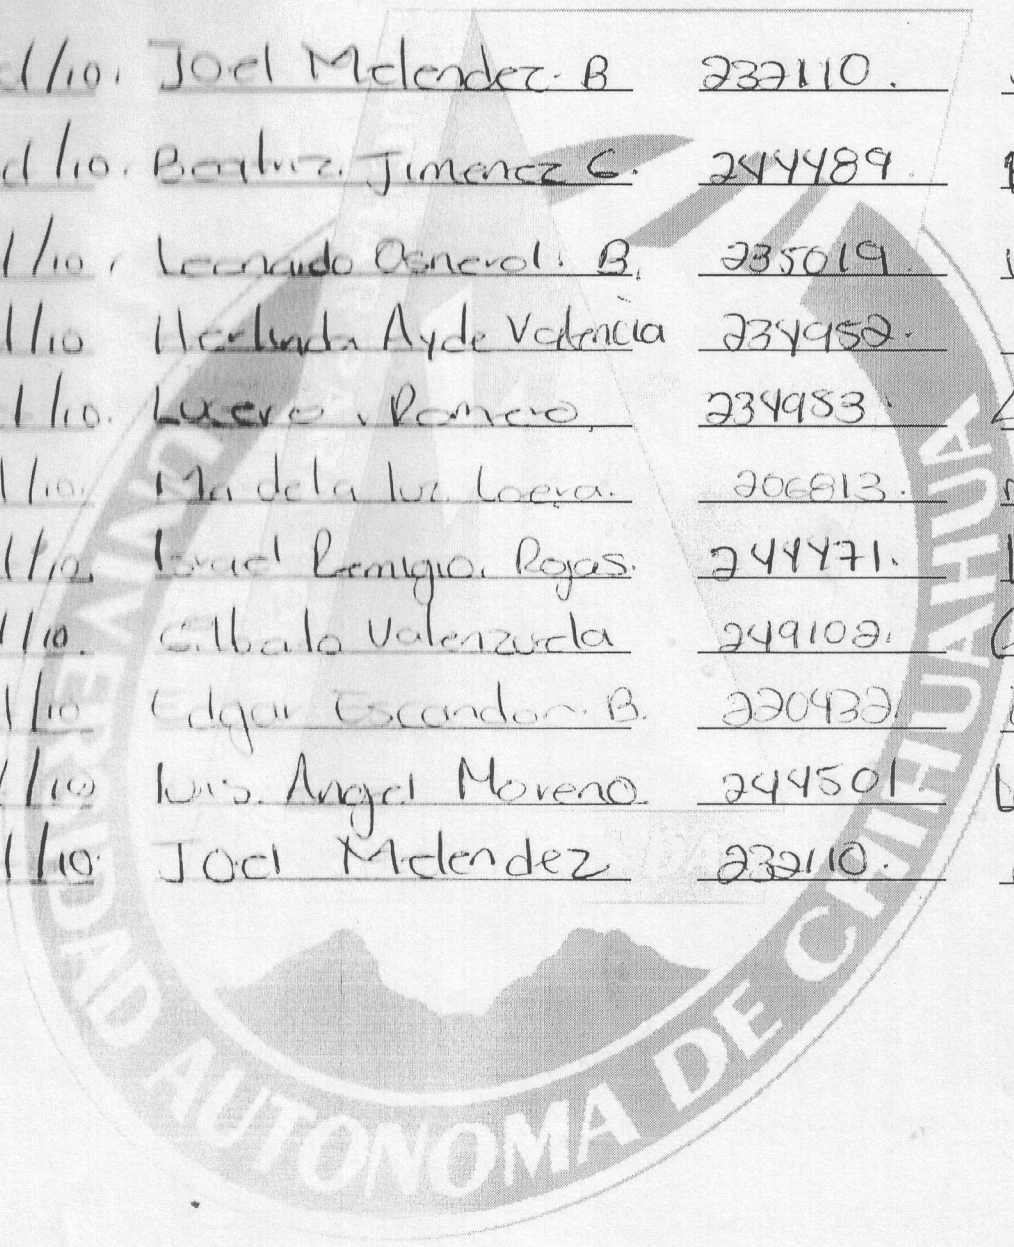 /10. Joel Melendez. B 232110.
/10. Beatriz. Jimenez C. 244489.
/10, Leonardo B. 235019.
/10 Herlinda Ayde Valencia 234952.
/10. Lucero Romero. 234953.
/10. Ma de la luz. Loera. 206813.
/10. Israel Remigio. Rojas. 244471.
/10. Gilbato Valenzuela 249102.
/10 Edgar Escandon. B. 220432.
/10 luis. Angel Moreno. 244501
/10. Joel Melendez 232110.
UNIVERSIDAD AUTONOMA DE CHIHUAHUA